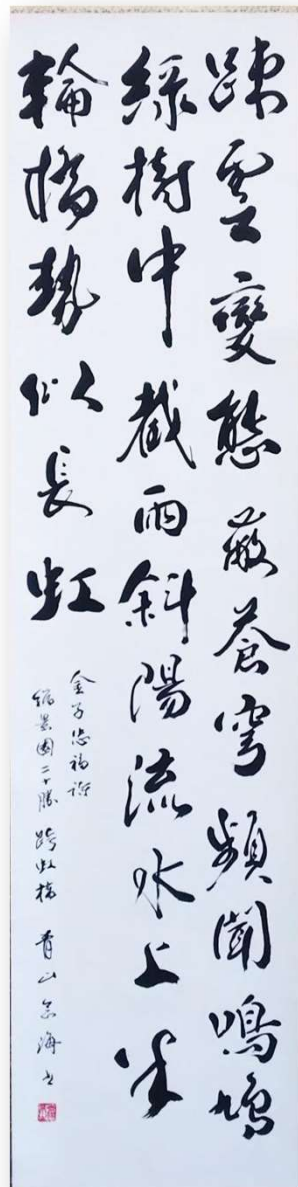 踈雲變態蔽蒼穹頻聞鳴鳩
綠樹中截雨斜陽流水上半
輪橋勢似長虹
金子忠福詩
縮景園二十勝 跨虹橋 青山 海書